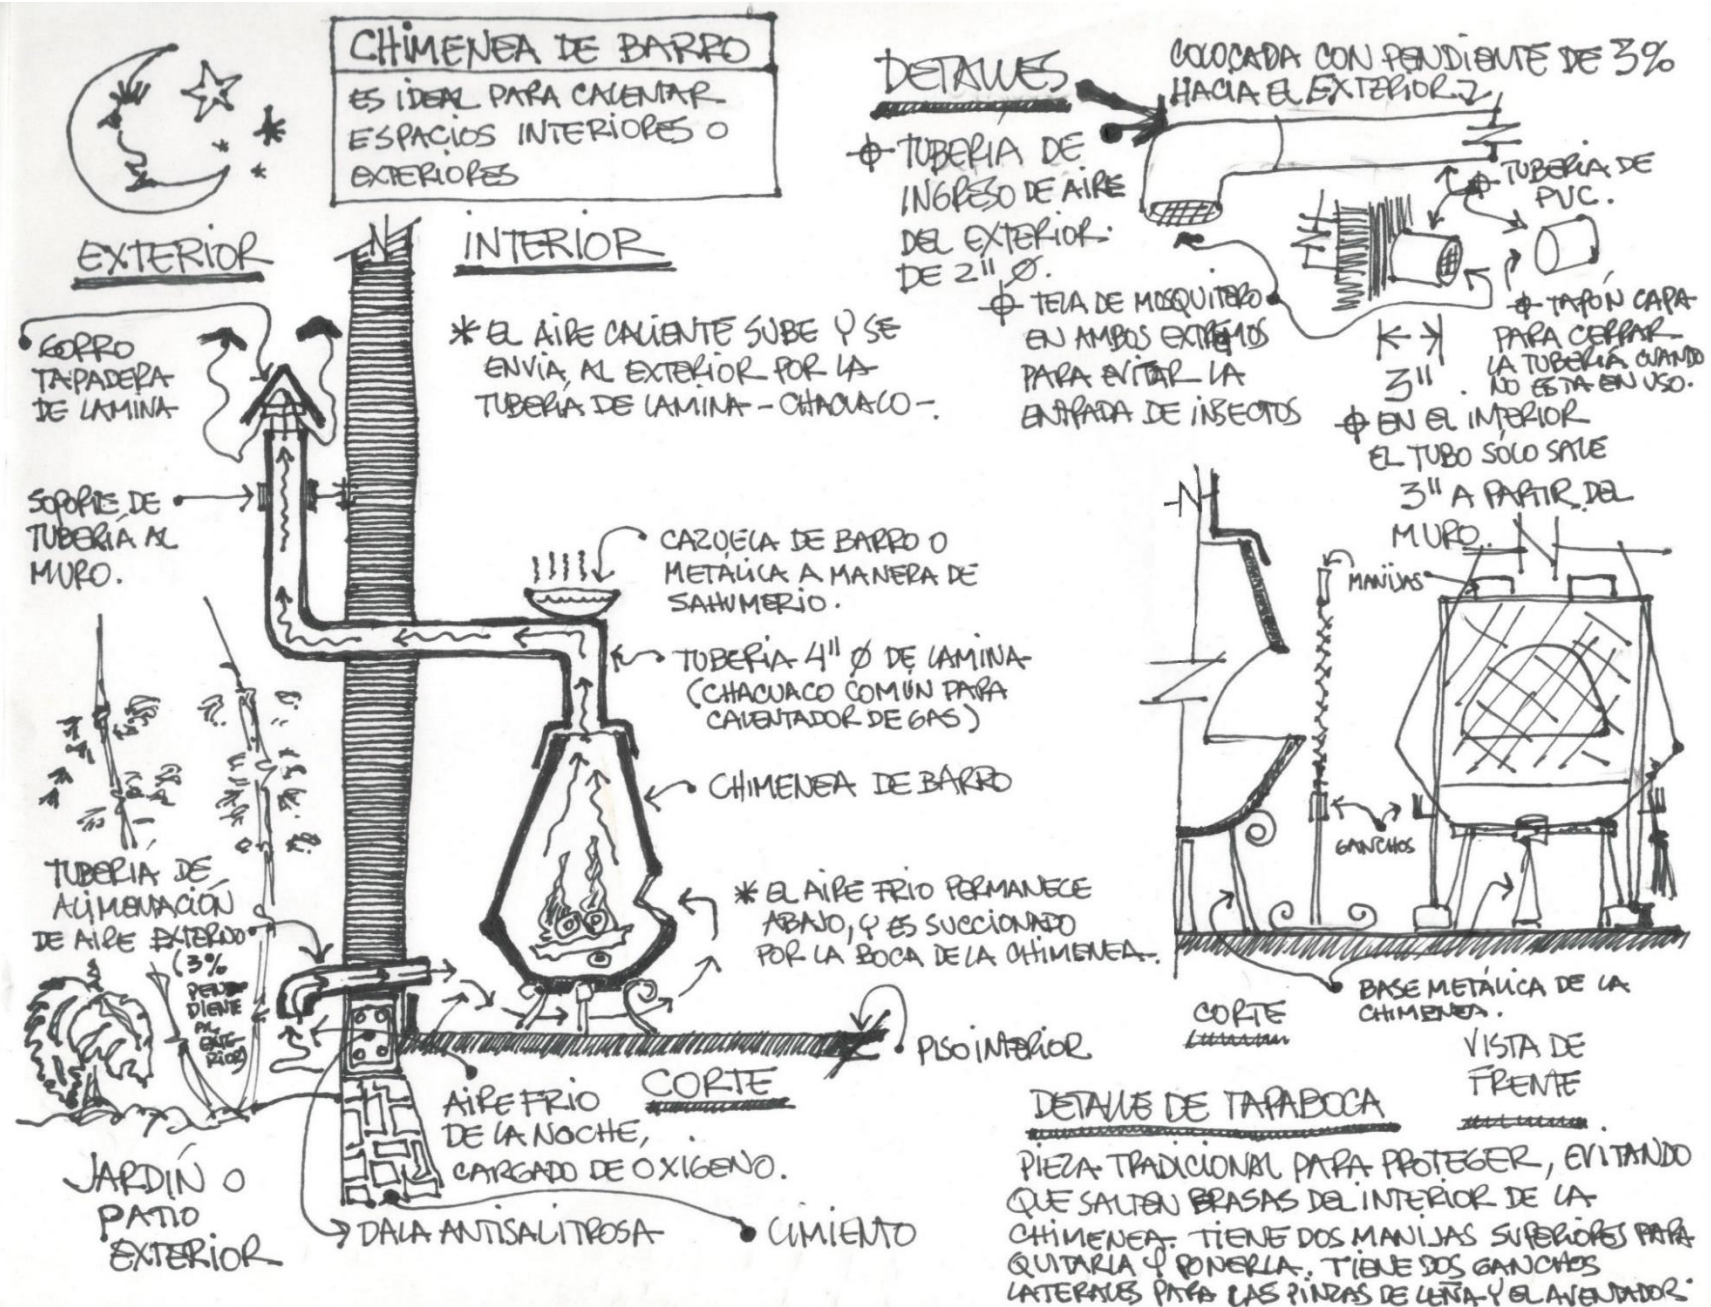 CHIMENEA DE BARRO
ES IDEAL PARA CALENTAR
ESPACIOS INTERIORES O
EXTERIORES
EXTERIOR
INTERIOR
GORRO
TAPADERA
DE LAMINA
* EL AIRE CALIENTE SUBE Y SE
ENVIA AL EXTERIOR POR LA
TUBERÍA DE LAMINA - CHACUACO -.
SOPORTE DE
TUBERÍA AL
MURO.
CAZUELA DE BARRO O
METÁLICA A MANERA DE
SAHUMERIO.
TUBERÍA 4" Ø DE LAMINA
(CHACUACO COMÚN PARA
CALENTADOR DE GAS)
CHIMENEA DE BARRO
* EL AIRE FRIO PERMANECE
ABAJO, Y ES SUCCIONADO
POR LA BOCA DE LA CHIMENEA.
TUBERIA DE
ALIMENTACIÓN
DE AIRE EXTERNO
(3%
PEN-
DIENTE
AL
EXTE-
RIOR)
PISO INTERIOR
CORTE
AIRE FRIO
DE LA NOCHE,
CARGADO DE OXIGENO.
JARDÍN O
PATIO
EXTERIOR
DALA ANTISALITROSA
CIMIENTO
DETALLES
COLOCADA CON PENDIENTE DE 3%
HACIA EL EXTERIOR
TUBERIA DE
INGRESO DE AIRE
DEL EXTERIOR
DE 2" Ø.
TUBERIA DE
PVC.
TELA DE MOSQUITERO
EN AMBOS EXTREMOS
PARA EVITAR LA
ENTRADA DE INSECTOS
TAPÓN CAPA
PARA CERRAR
LA TUBERÍA CUANDO
NO ESTA EN USO.
3"
EN EL INTERIOR
EL TUBO SÓLO SALE
3" A PARTIR DEL
MURO.
MANIJAS
GANCHOS
BASE METÁLICA DE LA
CHIMENEA.
CORTE
VISTA DE
FRENTE
DETALLE DE TAPABOCA
PIEZA TRADICIONAL PARA PROTEGER, EVITANDO
QUE SALTEN BRASAS DEL INTERIOR DE LA
CHIMENEA. TIENE DOS MANIJAS SUPERIORES PARA
QUITARLA Y PONERLA. TIENE DOS GANCHOS
LATERALES PARA LAS PINZAS DE LEÑA Y EL AVENTADOR.